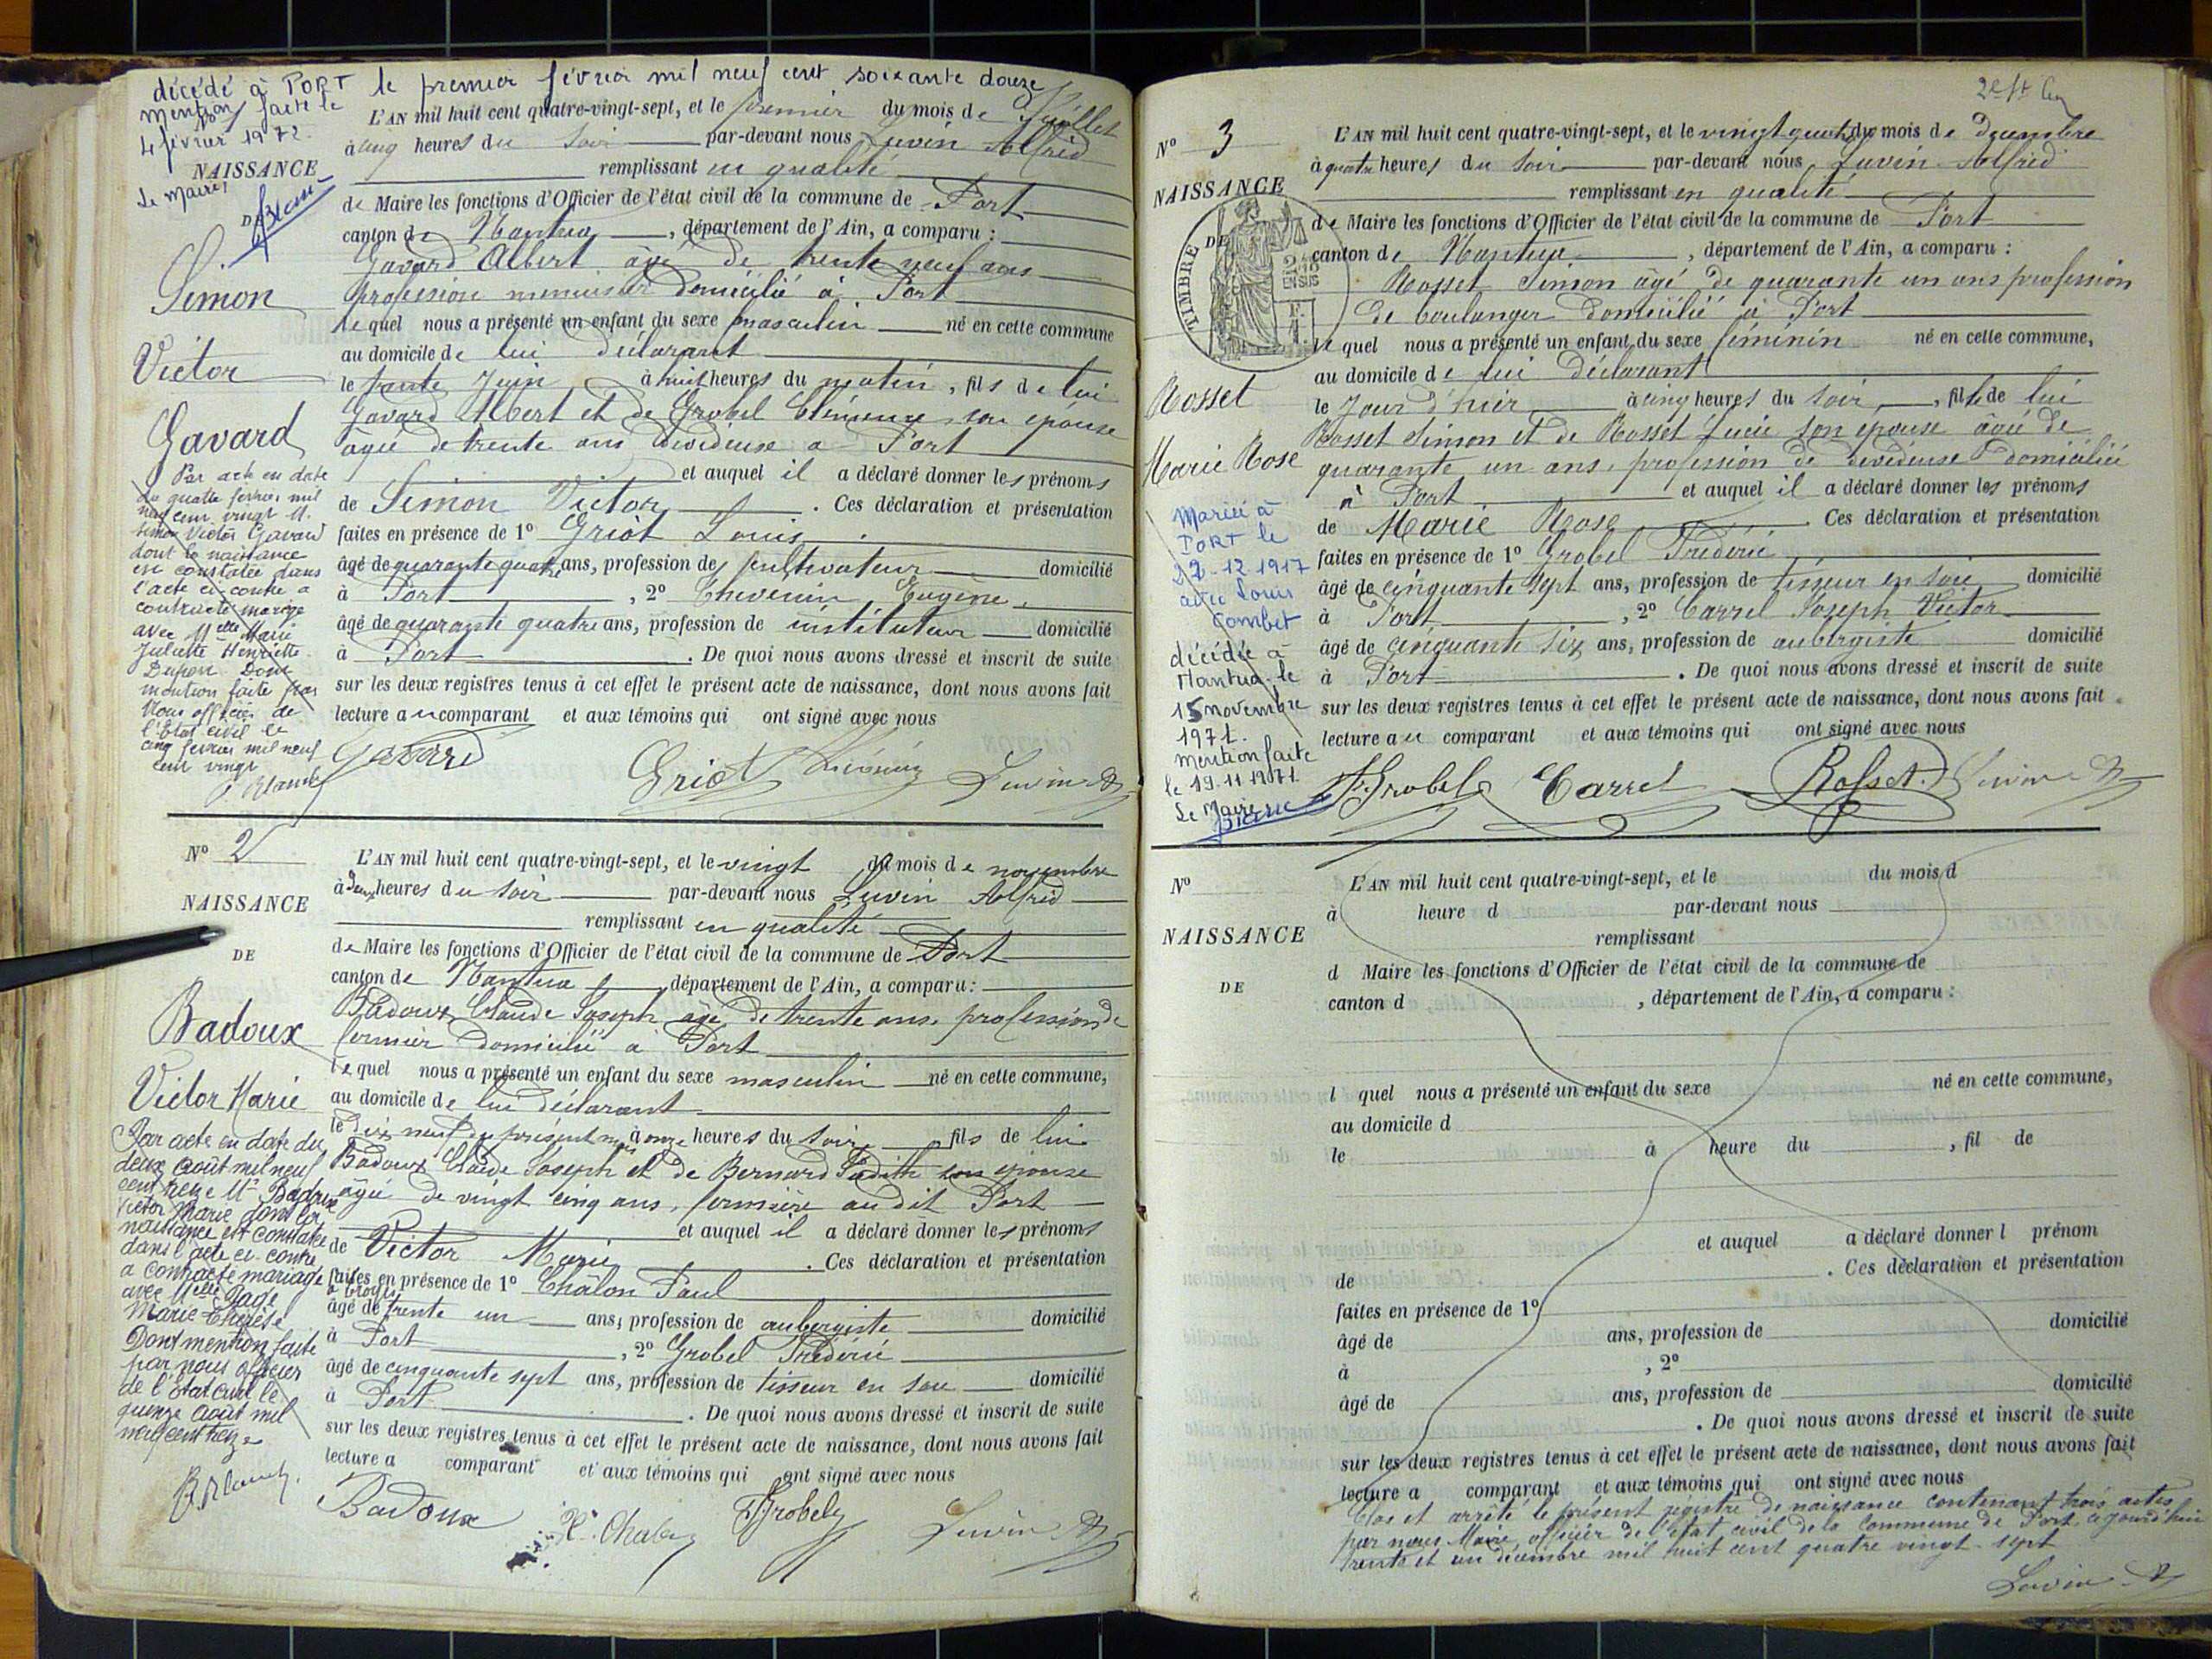 décédé à PORT le premier février mil neuf cent soixante douze
Mention faite le
4 février 1972.
Le Maire,
NAISSANCE
DE
Simon
Victor
Gavard
Par acte en date
du quatre février mil
neuf cent vingt M.
Simon Victor Gavard
dont la naissance
est constatée dans
l'acte ci-contre a
contracté mariage
avec Melle Marie
Juliette Henriette
Dupon. Dont
mention faite par
Nous officier de
l'Etat civil le
cinq février mil neuf
cent vingt
L'AN mil huit cent quatre-vingt-sept, et le premier du mois de Juillet
à cinq heures du soir par-devant nous Luvin Alfred
remplissant en qualité
de Maire les fonctions d'Officier de l'état civil de la commune de Port
canton de Nantua, département de l'Ain, a comparu :
Gavard Albert âgé de trente neuf ans
profession menuisier domicilié à Port
lequel nous a présenté un enfant du sexe masculin né en cette commune
au domicile de lui déclarant
le trente Juin à huit heures du matin, fils de lui
Gavard Albert et de Grobel Clémence son épouse
âgée de trente ans dévideuse à Port
et auquel il a déclaré donner les prénoms
de Simon Victor. Ces déclaration et présentation
faites en présence de 1° Griot Louis
âgé de quarante quatre ans, profession de cultivateur domicilié
à Port, 2° Thevenin Eugène
âgé de quarante quatre ans, profession de instituteur domicilié
à Port. De quoi nous avons dressé et inscrit de suite
sur les deux registres tenus à cet effet le présent acte de naissance, dont nous avons fait
lecture au comparant et aux témoins qui ont signé avec nous
Gavard Griot Luvin A
N° 2
NAISSANCE
DE
Badoux
Victor Marie
Par acte en date du
deux août mil neuf
cent treize Mr Badoux
Victor Marie dont la
naissance est constatée
dans l'acte ci-contre
a contracté mariage
avec Melle
Marie Thérèse
Dont mention faite
par nous officier
de l'état civil le
quinze août mil
neuf cent treize
L'AN mil huit cent quatre-vingt-sept, et le vingt du mois de novembre
à deux heures du soir par-devant nous Luvin Alfred
remplissant en qualité
de Maire les fonctions d'Officier de l'état civil de la commune de Port
canton de Nantua, département de l'Ain, a comparu :
Badoux Claude Joseph âgé de trente ans, profession de
fermier domicilié à Port
lequel nous a présenté un enfant du sexe masculin né en cette commune,
au domicile de lui déclarant
le dix neuf du présent mois à onze heures du soir, fils de lui
Badoux Claude Joseph et de Bernard Judith son épouse
âgée de vingt cinq ans, fermière au dit Port
et auquel il a déclaré donner les prénoms
de Victor Marie. Ces déclaration et présentation
faites en présence de 1° Châlon Paul
âgé de trente un ans, profession de aubergiste domicilié
à Port, 2° Grobel Frédéric
âgé de cinquante sept ans, profession de tisseur en soie domicilié
à Port. De quoi nous avons dressé et inscrit de suite
sur les deux registres tenus à cet effet le présent acte de naissance, dont nous avons fait
lecture a comparant et aux témoins qui ont signé avec nous
Badoux F. Grobel Luvin A
N° 3
NAISSANCE
DE
TIMBRE
2/10
EN SUS
Rosset
Marie Rose
Mariée à
PORT le
22-12-1917
avec Louis
Combet
décédée à
Nantua le
15 novembre
1971.
Mention faite
le 19.11.1971.
Le Maire
L'AN mil huit cent quatre-vingt-sept, et le vingt quatre du mois de Décembre
à quatre heures du soir par-devant nous Luvin Alfred
remplissant en qualité
de Maire les fonctions d'Officier de l'état civil de la commune de Port
canton de Nantua, département de l'Ain, a comparu :
Rosset Simon âgé de quarante un ans profession
de boulanger domicilié à Port
lequel nous a présenté un enfant du sexe féminin né en cette commune,
au domicile de lui déclarant
le Jour d'hier à cinq heures du soir, fille de lui
Rosset Simon et de Rosset Lucie son épouse âgée de
quarante un ans, profession de dévideuse domiciliée
à Port et auquel il a déclaré donner les prénoms
de Marie Rose. Ces déclaration et présentation
faites en présence de 1° Grobel Frédéric
âgé de cinquante sept ans, profession de tisseur en soie domicilié
à Port, 2° Carrel Joseph Victor
âgé de cinquante six ans, profession de aubergiste domicilié
à Port. De quoi nous avons dressé et inscrit de suite
sur les deux registres tenus à cet effet le présent acte de naissance, dont nous avons fait
lecture au comparant et aux témoins qui ont signé avec nous
F. Grobel Carrel Rosset Luvin A
N°
NAISSANCE
DE
L'AN mil huit cent quatre-vingt-sept, et le du mois d
à heure d par-devant nous
remplissant
d Maire les fonctions d'Officier de l'état civil de la commune de
canton d , département de l'Ain, a comparu :
l quel nous a présenté un enfant du sexe né en cette commune,
au domicile d
le à heure du , fil de
et auquel a déclaré donner l prénom
de . Ces déclaration et présentation
faites en présence de 1°
âgé de ans, profession de domicilié
à , 2°
âgé de ans, profession de domicilié
. De quoi nous avons dressé et inscrit de suite
sur les deux registres tenus à cet effet le présent acte de naissance, dont nous avons fait
lecture a comparant et aux témoins qui ont signé avec nous
Clos et arrêté le présent registre de naissance contenant trois actes
par nous Maire, officier de l'état civil de la commune de Port, ce jourd'hui
trente et un décembre mil huit cent quatre vingt-sept
Luvin A